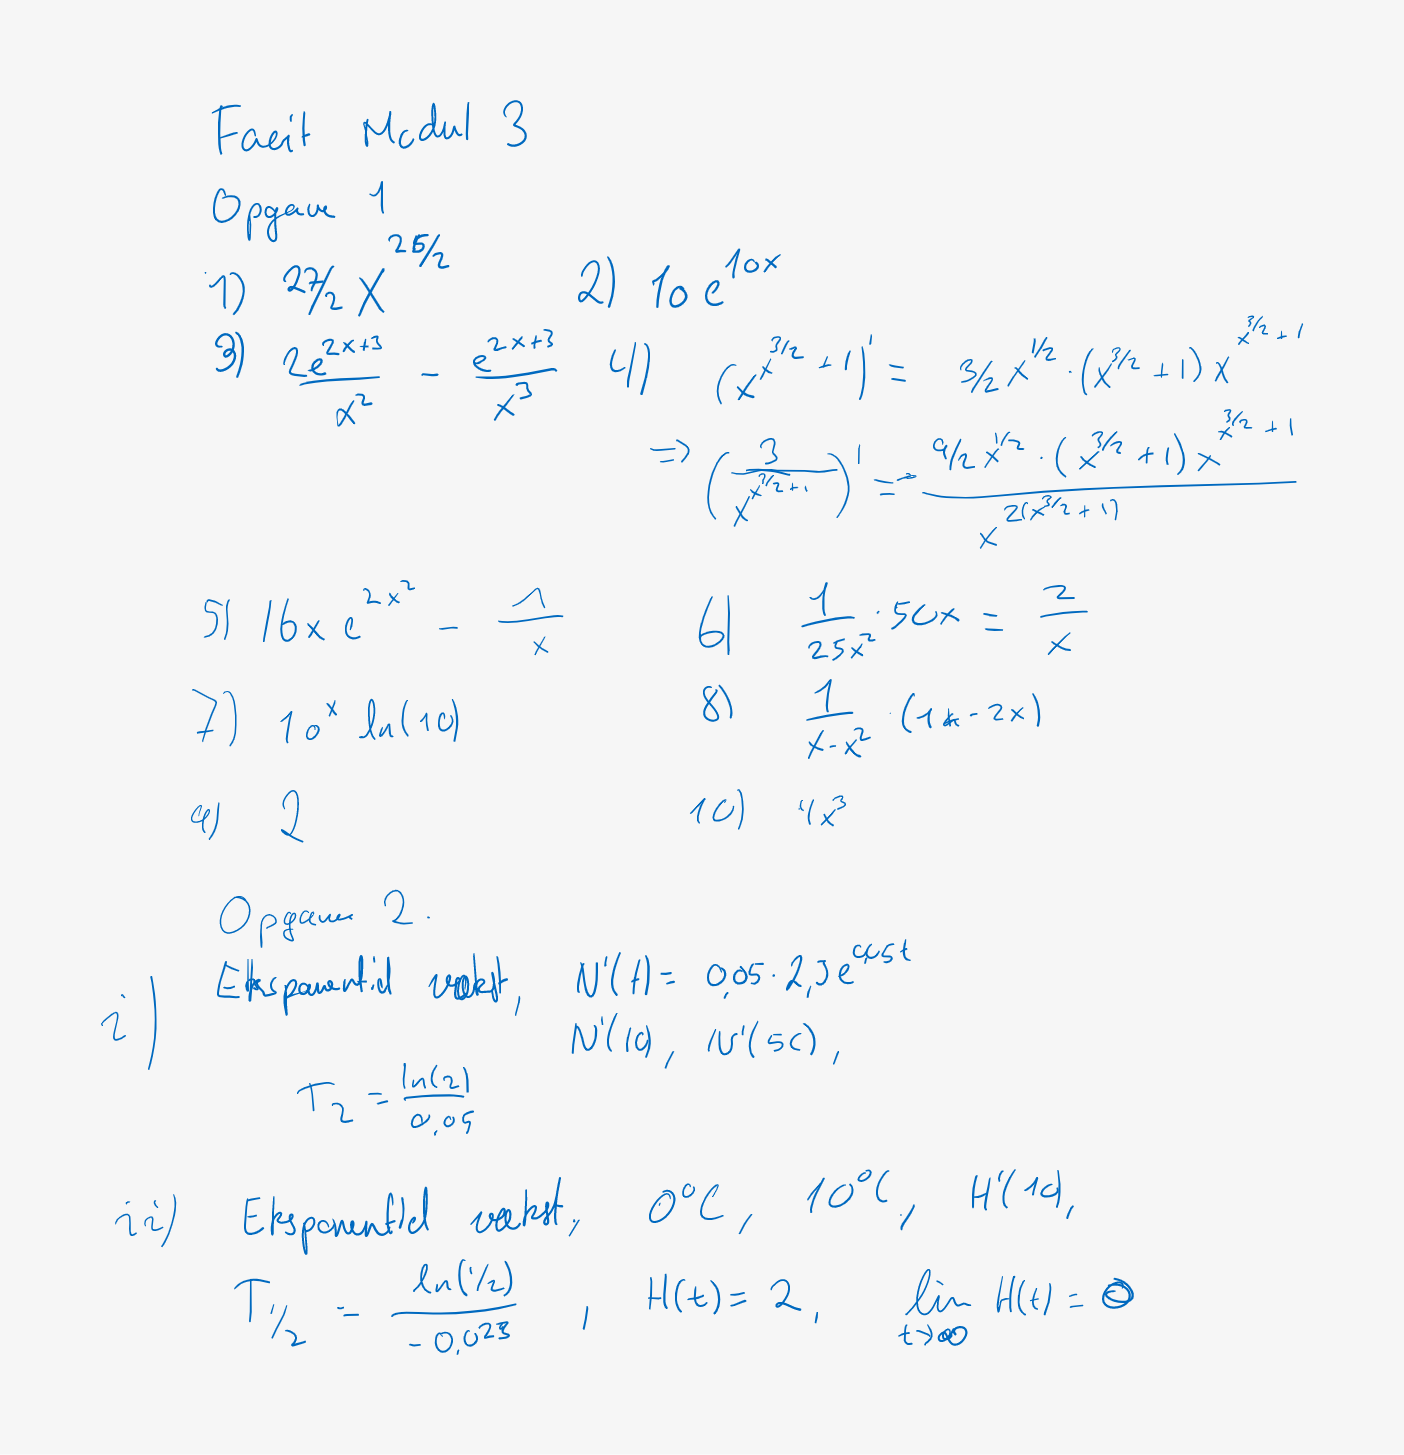 Facit Modul 3
Opgave 1
1) 27/2 x^{25/2} 2) 10 e^{10x}
3) \frac{2e^{2x+3}}{x^2} - \frac{e^{2x+3}}{x^3} 4) (x^{x^{3/2}+1})' = 3/2 x^{1/2} · (x^{3/2} + 1) x^{x^{3/2}+1}
=> (\frac{3}{x^{x^{3/2}+1}})' = - \frac{9/2 x^{1/2} · (x^{3/2} + 1) x^{x^{3/2}+1}}{x^{2(x^{3/2}+1)}}
5) 16x e^{2x^2} - \frac{1}{x} 6) \frac{1}{25x^2} · 50x = \frac{2}{x}
7) 10^x ln(10) 8) \frac{1}{x-x^2} · (1 - 2x)
9) 2 10) 4x^3
Opgave 2.
i) Eksponentiel vækst, N'(t) = 0,05 · 2,5 e^{0,05t}
N'(10), N'(50),
T_2 = \frac{ln(2)}{0,05}
ii) Eksponentiel vækst, 0°C, 10°C, H'(10),
T_{1/2} = \frac{ln(1/2)}{-0,023}, H(t) = 2, lim_{t→∞} H(t) = 0